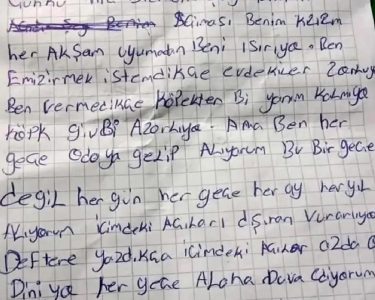 Benim Sçiması Benim Kızım
her AKŞam uyumadan Beni ısırıya. Ben
Emzirmek istemdikçe evdekiler Zorluy
Ben vermedikçe köpekten Bi yanım Kalmıya
köpk givBi Azarlıya. Ama Ben her
geçe Odaya gelip Alıyorum Bu Bir geçe
degil her gün her geçe her ay her yıl
Alıyorum içimdeki Açıları dşıran Vuraruya
Deftere yazdıkça içimdeki Açıar azda
Dini ya her geçe ALaha Dava Ediyorum